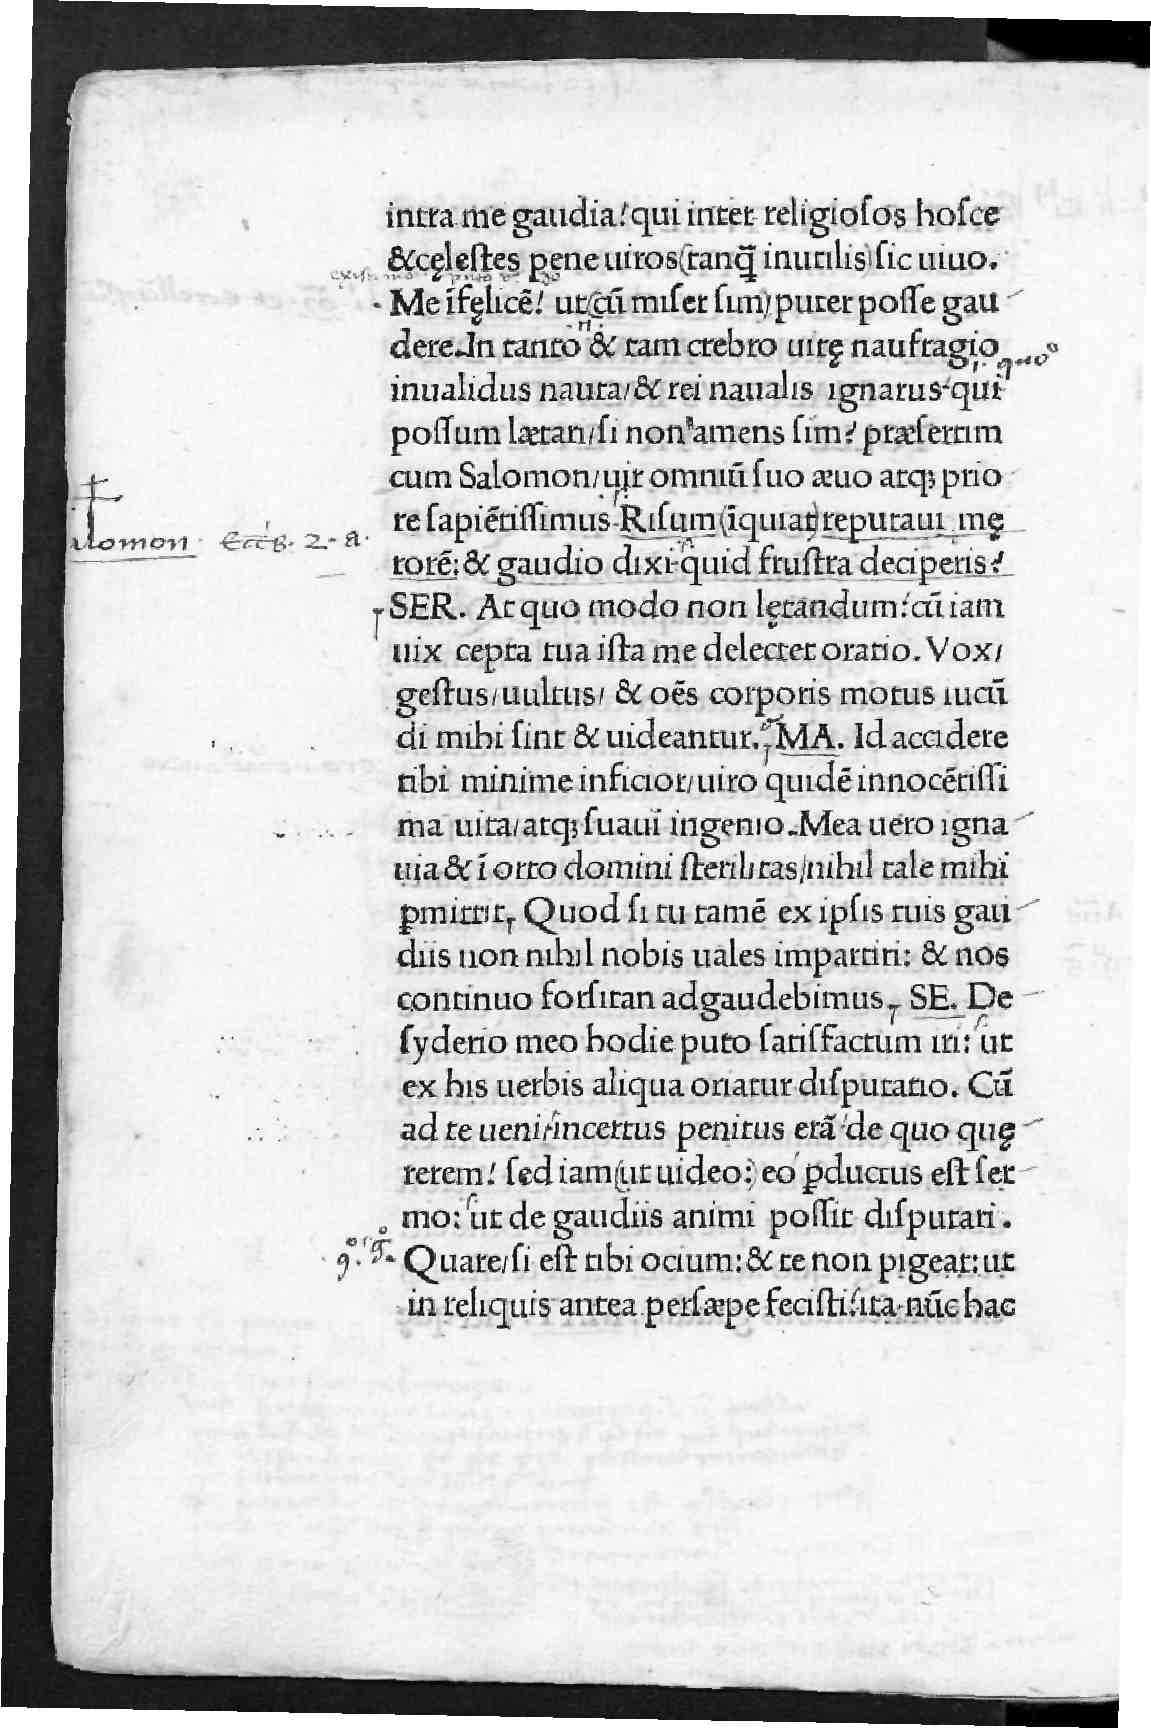 intra me gaudia! qui inter religiosos hosce
&cęlestes pene uiros(tanq̃ inutilis)sic uiuo.
Me ĩfęlicẽ! ut(cũ miser sim)puter posse gau
dere.In tanto & tam crebro uitę naufragio
quo
inualidus nauta/& rei naualis ignarus qui
possum lætari/si non amens sim? præsertim
cum Salomon/uir omniũ suo æuo atqȝ prio
Salomon Eccs. 2. a.
re sapiẽtissimus Risum(ĩquiat)reputaui mę
rorẽ: & gaudio dixi quid frustra deciperis?
SER. At quo modo non lętandum! cũ iam
uix cepta tua ista me delectet oratio. Vox/
gestus/uultus/ & oẽs corporis motus iucũ
di mihi sint & uideantur. MA. Id accidere
tibi minime inficior/uiro quidẽ innocẽtissi
ma uita/atqȝ suaui ingenio.Mea uero igna
uia & ĩ orto domini sterilitas/nihil tale mihi
ꝑmittit, Quod si tu tamẽ ex ipsis tuis gau
diis non nihil nobis uales impartiri: & nos
continuo forsitan adgaudebimus, SE. De
syderio meo hodie puto satisfactum iri: ut
ex his uerbis aliqua oriatur disputatio. Cũ
ad te ueni/incertus penitus erã de quo quę
rerem! sed iam(ut uideo:)eo ꝓductus est ser
mo: ut de gaudiis animi possit disputari.
Quare/si est tibi ocium: & te non pigeat: ut
in reliquis antea persæpe fecisti! ita nũc hac